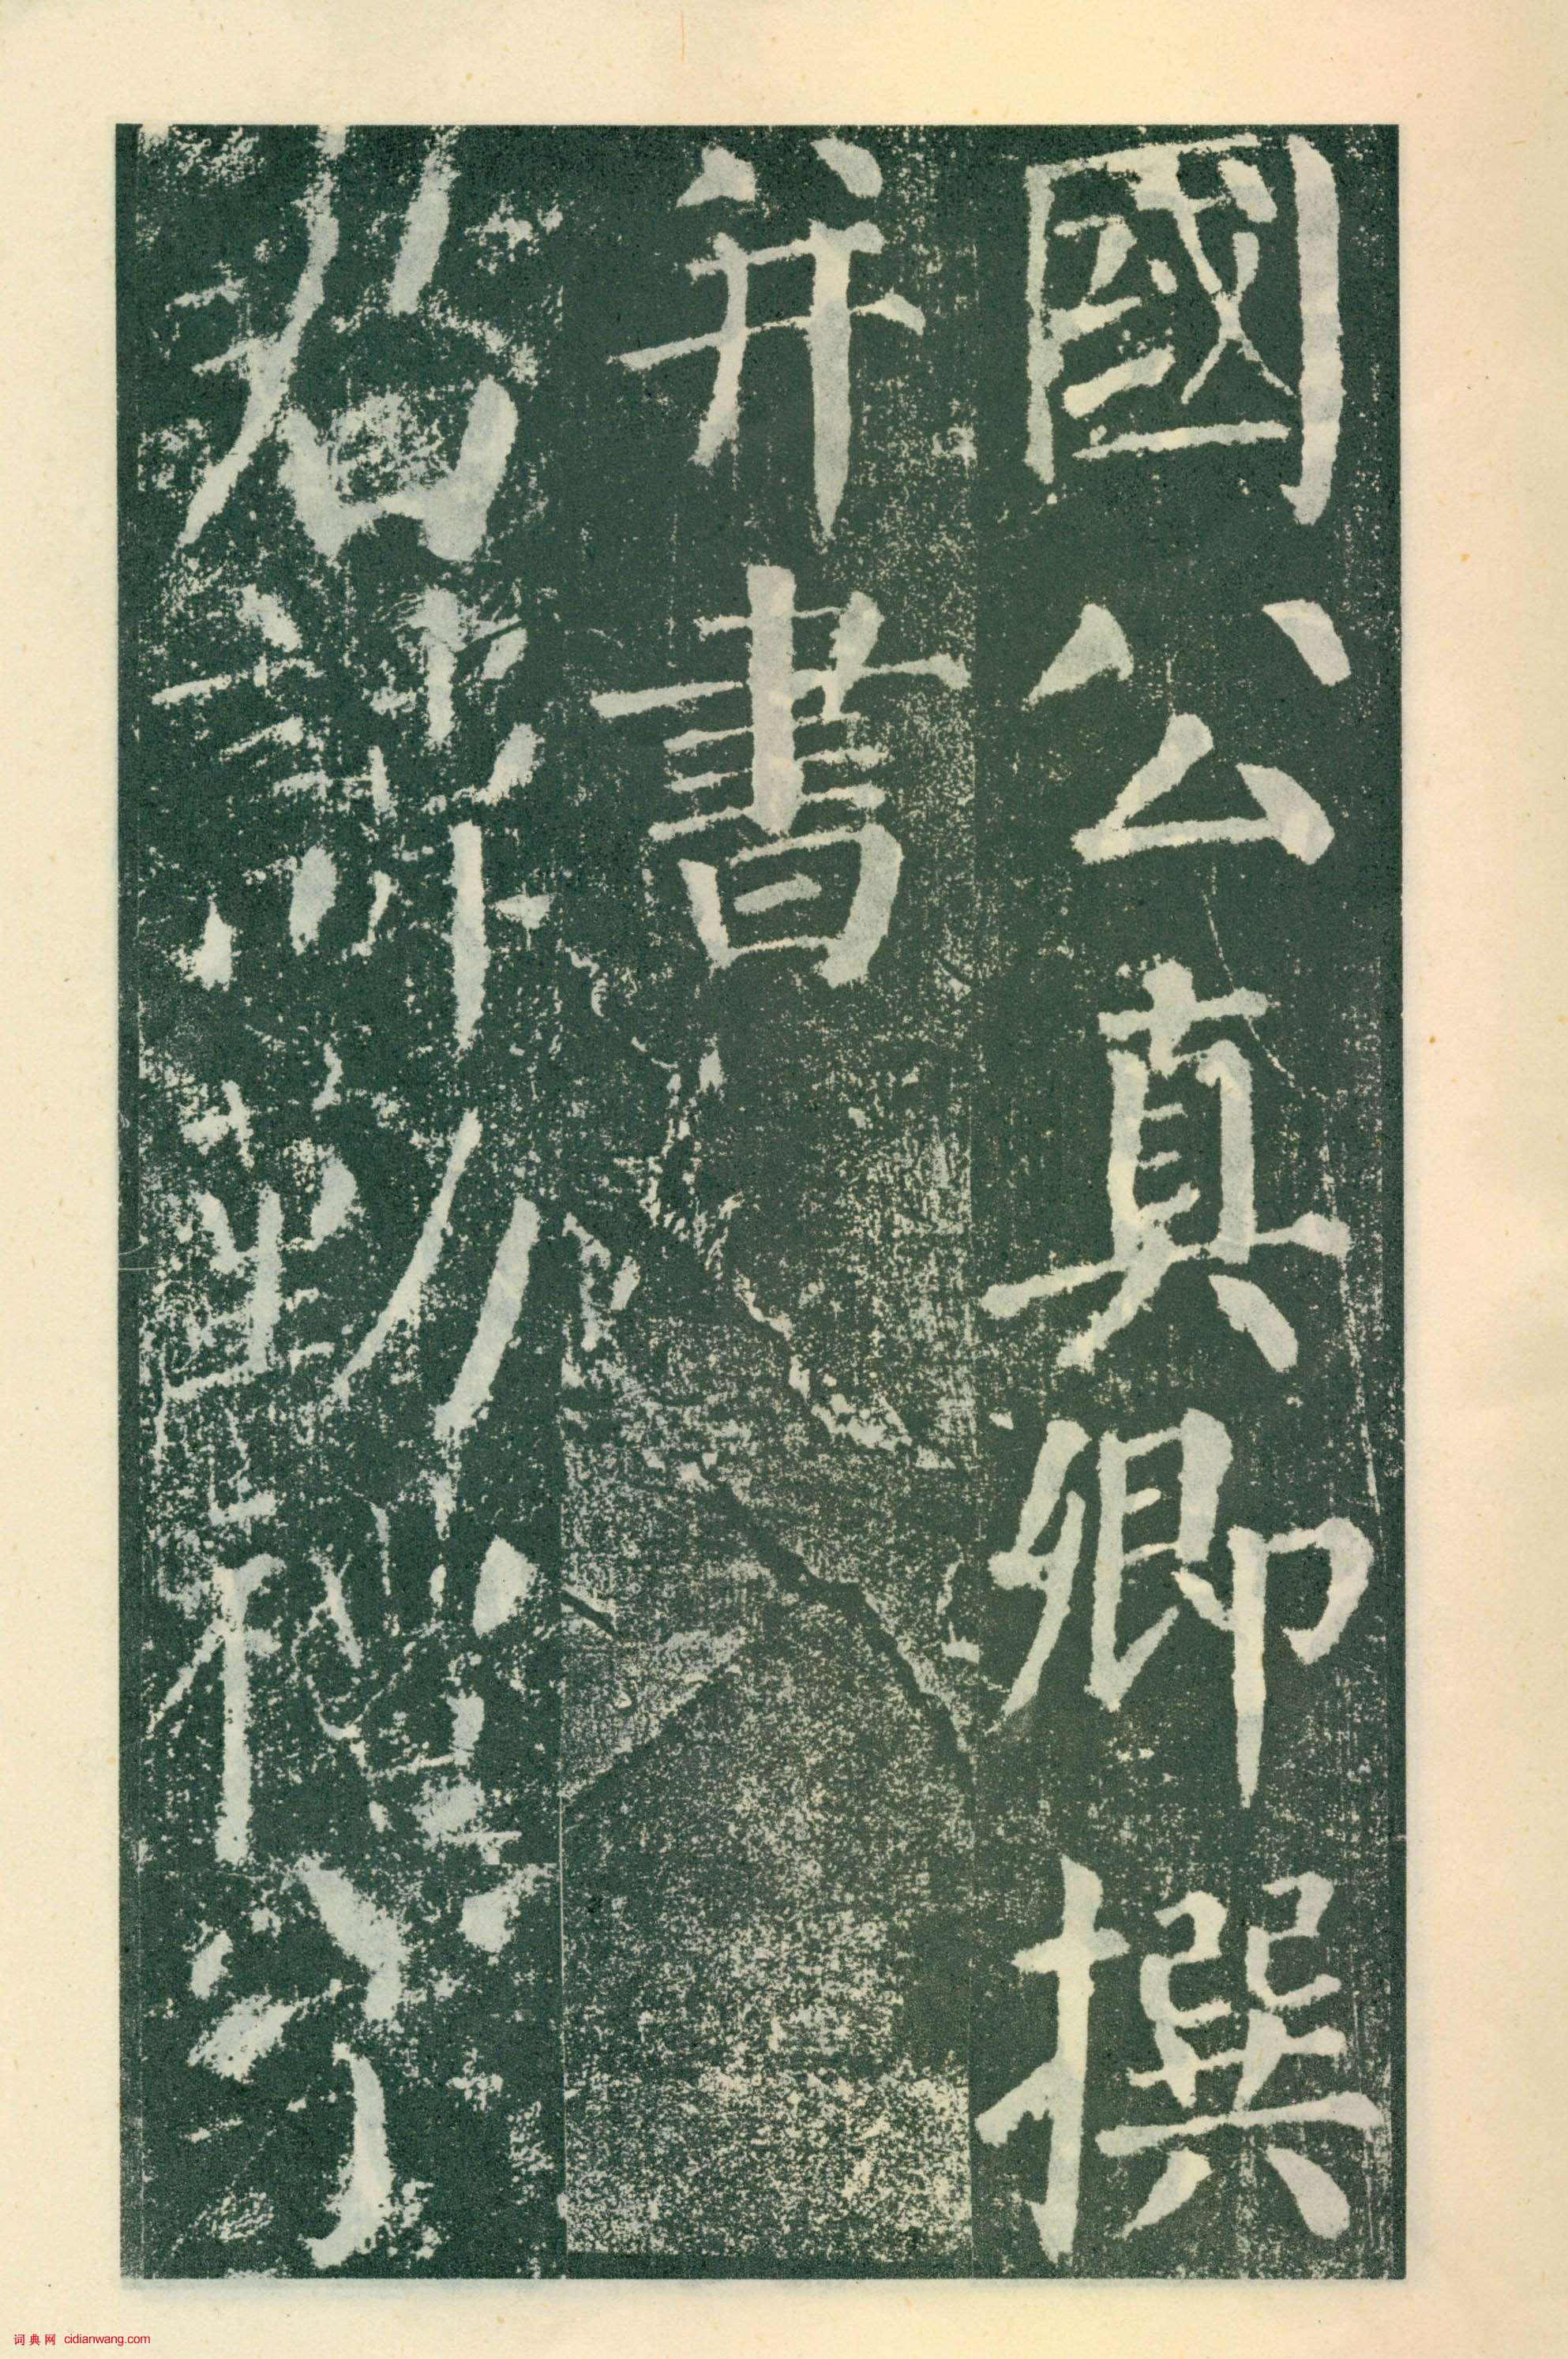 國公真卿撰
并書
君諱勤禮字
词典网 cidianwang.com